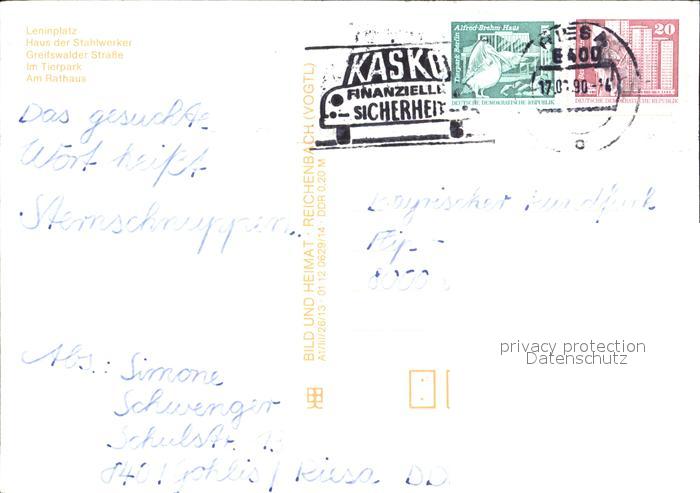 Leninplatz
Haus der Stahlwerker
Greifswalder Straße
Im Tierpark
Am Rathaus
KASKO
FINANZIELLE
SICHERHEIT
Alfred-Brehm Haus
Tierpark Berlin
DEUTSCHE DEMOKRATISCHE REPUBLIK
RIESA
8400
17.01.90-14
20
DEUTSCHE DEMOKRATISCHE REPUBLIK
Das gesuchte
Wort heißt
Sternschnuppen.
BILD UND HEIMAT · REICHENBACH (VOGTL)
A1/III/26/13 01 12 0629/14 DDR 0,20 M
Bayrischer Rundfunk
8000
privacy protection
Datenschutz
Abs.: Simone
Schwenger
Schulstr. 13
8401 Gohlis / Riesa DD